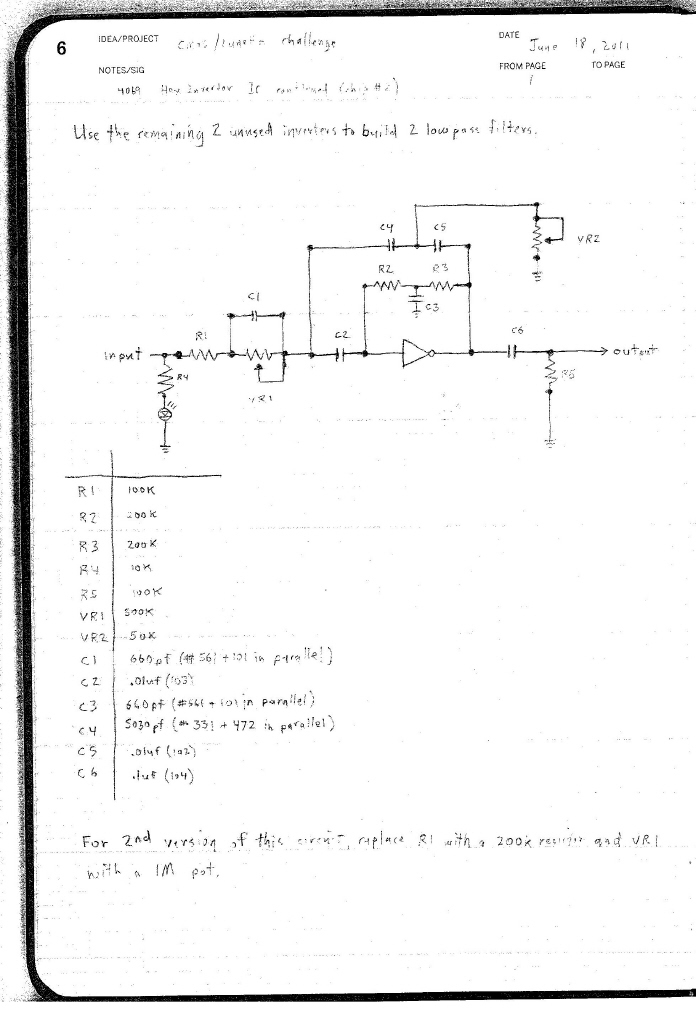 6
IDEA/PROJECT CMOS/Lunetta challenge
DATE June 18, 2011
NOTES/SIG 4069 Hex Inverter IC continued (chip #2)
FROM PAGE 1 TO PAGE
Use the remaining 2 unused inverters to build 2 lowpass filters.
C4 C5
VR2
R2 R3
C3
C1
R1
C2
C6
input
output
R4
VR1
R5
R1 100K
R2 200K
R3 200K
R4 10K
R5 100K
VR1 500K
VR2 50K
C1 660pf (#561 + 101 in parallel)
C2 .01uf (103)
C3 660pf (#561 + 101 in parallel)
C4 5030pf (#331 + 472 in parallel)
C5 .01uf (102)
C6 .1uf (104)
For 2nd version of this circuit, replace R1 with a 200k resistor and VR1
with a 1M pot.